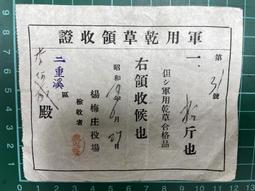 軍用乾草領收證
第31號
一、拾斤也
但シ軍用乾草合格品
右領收候也
昭和 年 月 日
楊梅庄役場
檢收者
二重溪區
殿